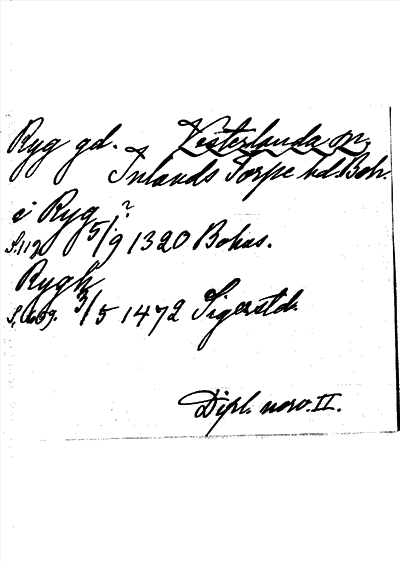 Ryg gd. Vesterlanda sn,
Inlands Torpe hd Boh.
i Ryg ?
S. 112 5/9 1320 Bohus.
Rygh
S. 669. 3/5 1472 Sigerstd.
Dipl. norv. II.